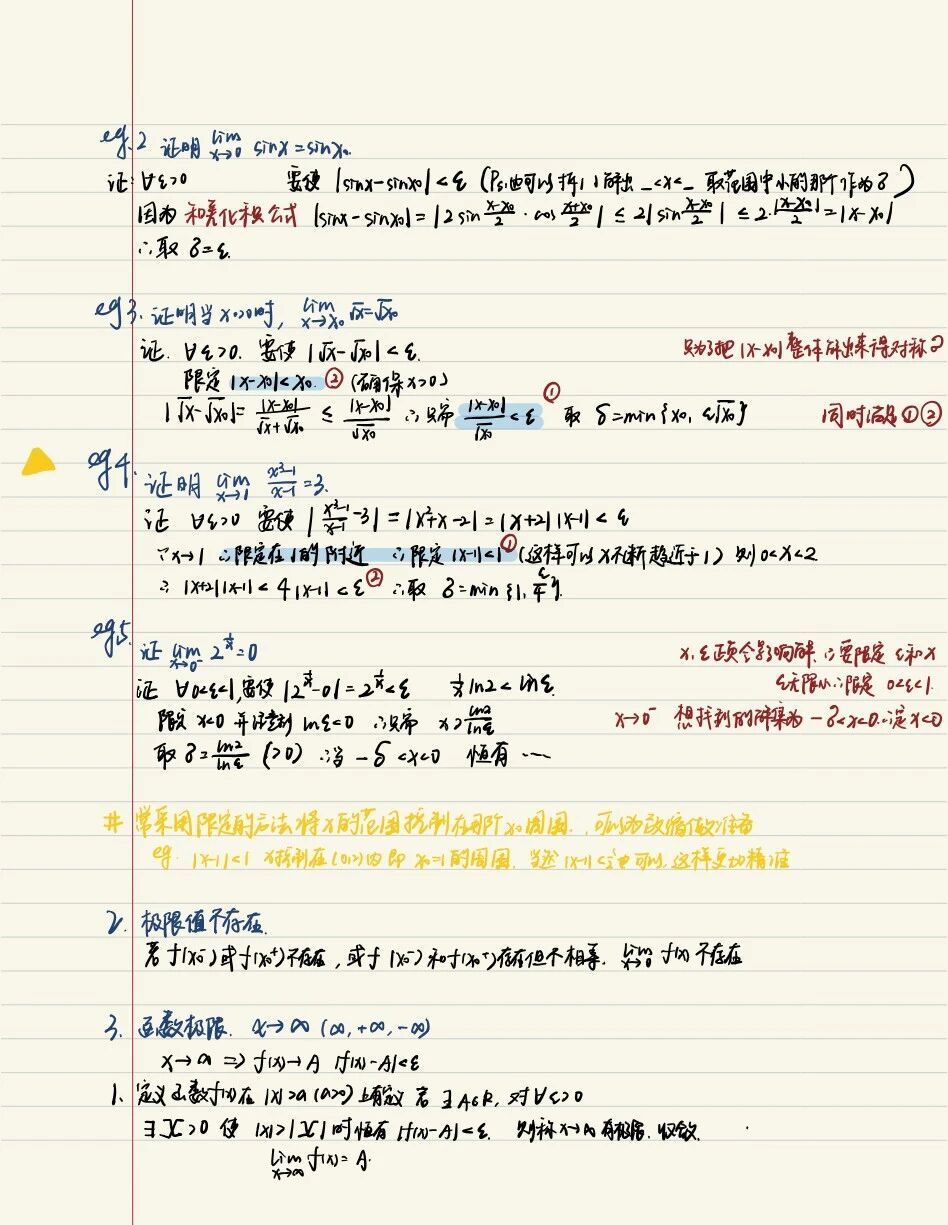 eg.2 证明 lim x→0 sinx = sinx₀.
证: ∀ε>0 要使 |sinx-sinx₀|<ε (Ps.也可以拆| |解出 _<x<_ 取范围中小的那个作为δ)
因为 和差化积公式 |sinx-sinx₀| = |2 sin (x-x₀)/2 · cos (x+x₀)/2| ≤ 2|sin (x-x₀)/2| ≤ 2·|x-x₀|/2 = |x-x₀|
∴取 δ=ε.
eg3. 证明当x₀>0时, lim x→x₀ √x=√x₀
证. ∀ε>0. 要使 |√x-√x₀|<ε. 只为了把 |x-x₀| 整体解出来得对称
限定 |x-x₀|<x₀. ② (确保x>0)
|√x-√x₀| = |x-x₀|/(√x+√x₀) ≤ |x-x₀|/√x₀ ∴只需 |x-x₀|/√x₀ <ε ① 取 δ=min{x₀, ε√x₀} 同时满足①②
eg4. 证明 lim x→1 (x³-1)/(x-1) =3.
证 ∀ε>0 要使 |(x³-1)/(x-1) -3| = |x²+x-2| = |x+2||x-1|<ε
∵x→1 ∴限定在1的附近 ∴限定 |x-1|<1 ① (这样可以x不断趋近于1) 则 0<x<2
∴ |x+2||x-1|< 4|x-1|<ε ② ∴取 δ=min{1, ε/4}.
eg5. 证 lim x→0⁻ 2^(1/x)=0 x,ε正负会影响解 ∴要限定 ε和x
证 ∀0<ε<1, 要使 |2^(1/x)-0| = 2^(1/x)<ε 1/x ln2 < lnε. ε无限小∴限定 0<ε<1.
限定 x<0 并注意到 lnε<0 ∴只需 x> ln2/lnε x→0⁻ 想找到的解集为 -δ<x<0 ∴定x<0
取 δ= ln2/lnε (>0) ∴当 -δ<x<0 恒有 ...
# 常采用限定的方法将x的范围控制在 x₀周围, 可以为放缩做准备
eg. |x-1|<1 x控制在(0,2)内 即 x₀=1的周围. 当然 |x-1|<½也可以, 这样更加精准
2. 极限值不存在.
若 f(x₀⁻) 或 f(x₀⁺)不存在, 或 f(x₀⁻) 和 f(x₀⁺)存在但不相等. lim x→0 f(x) 不存在
3. 函数极限. x→∞ (∞, +∞, -∞)
x→∞ ⇒ f(x)→A |f(x)-A|<ε
1. 定义函数f(x)在 |x|>a (a>0)上有定义 若 ∃A∈R, 对∀ε>0
∃X>0 使 |x|>|X|时恒有 |f(x)-A|<ε. 则称x→∞ 有极限. 收敛.
lim x→∞ f(x)=A.